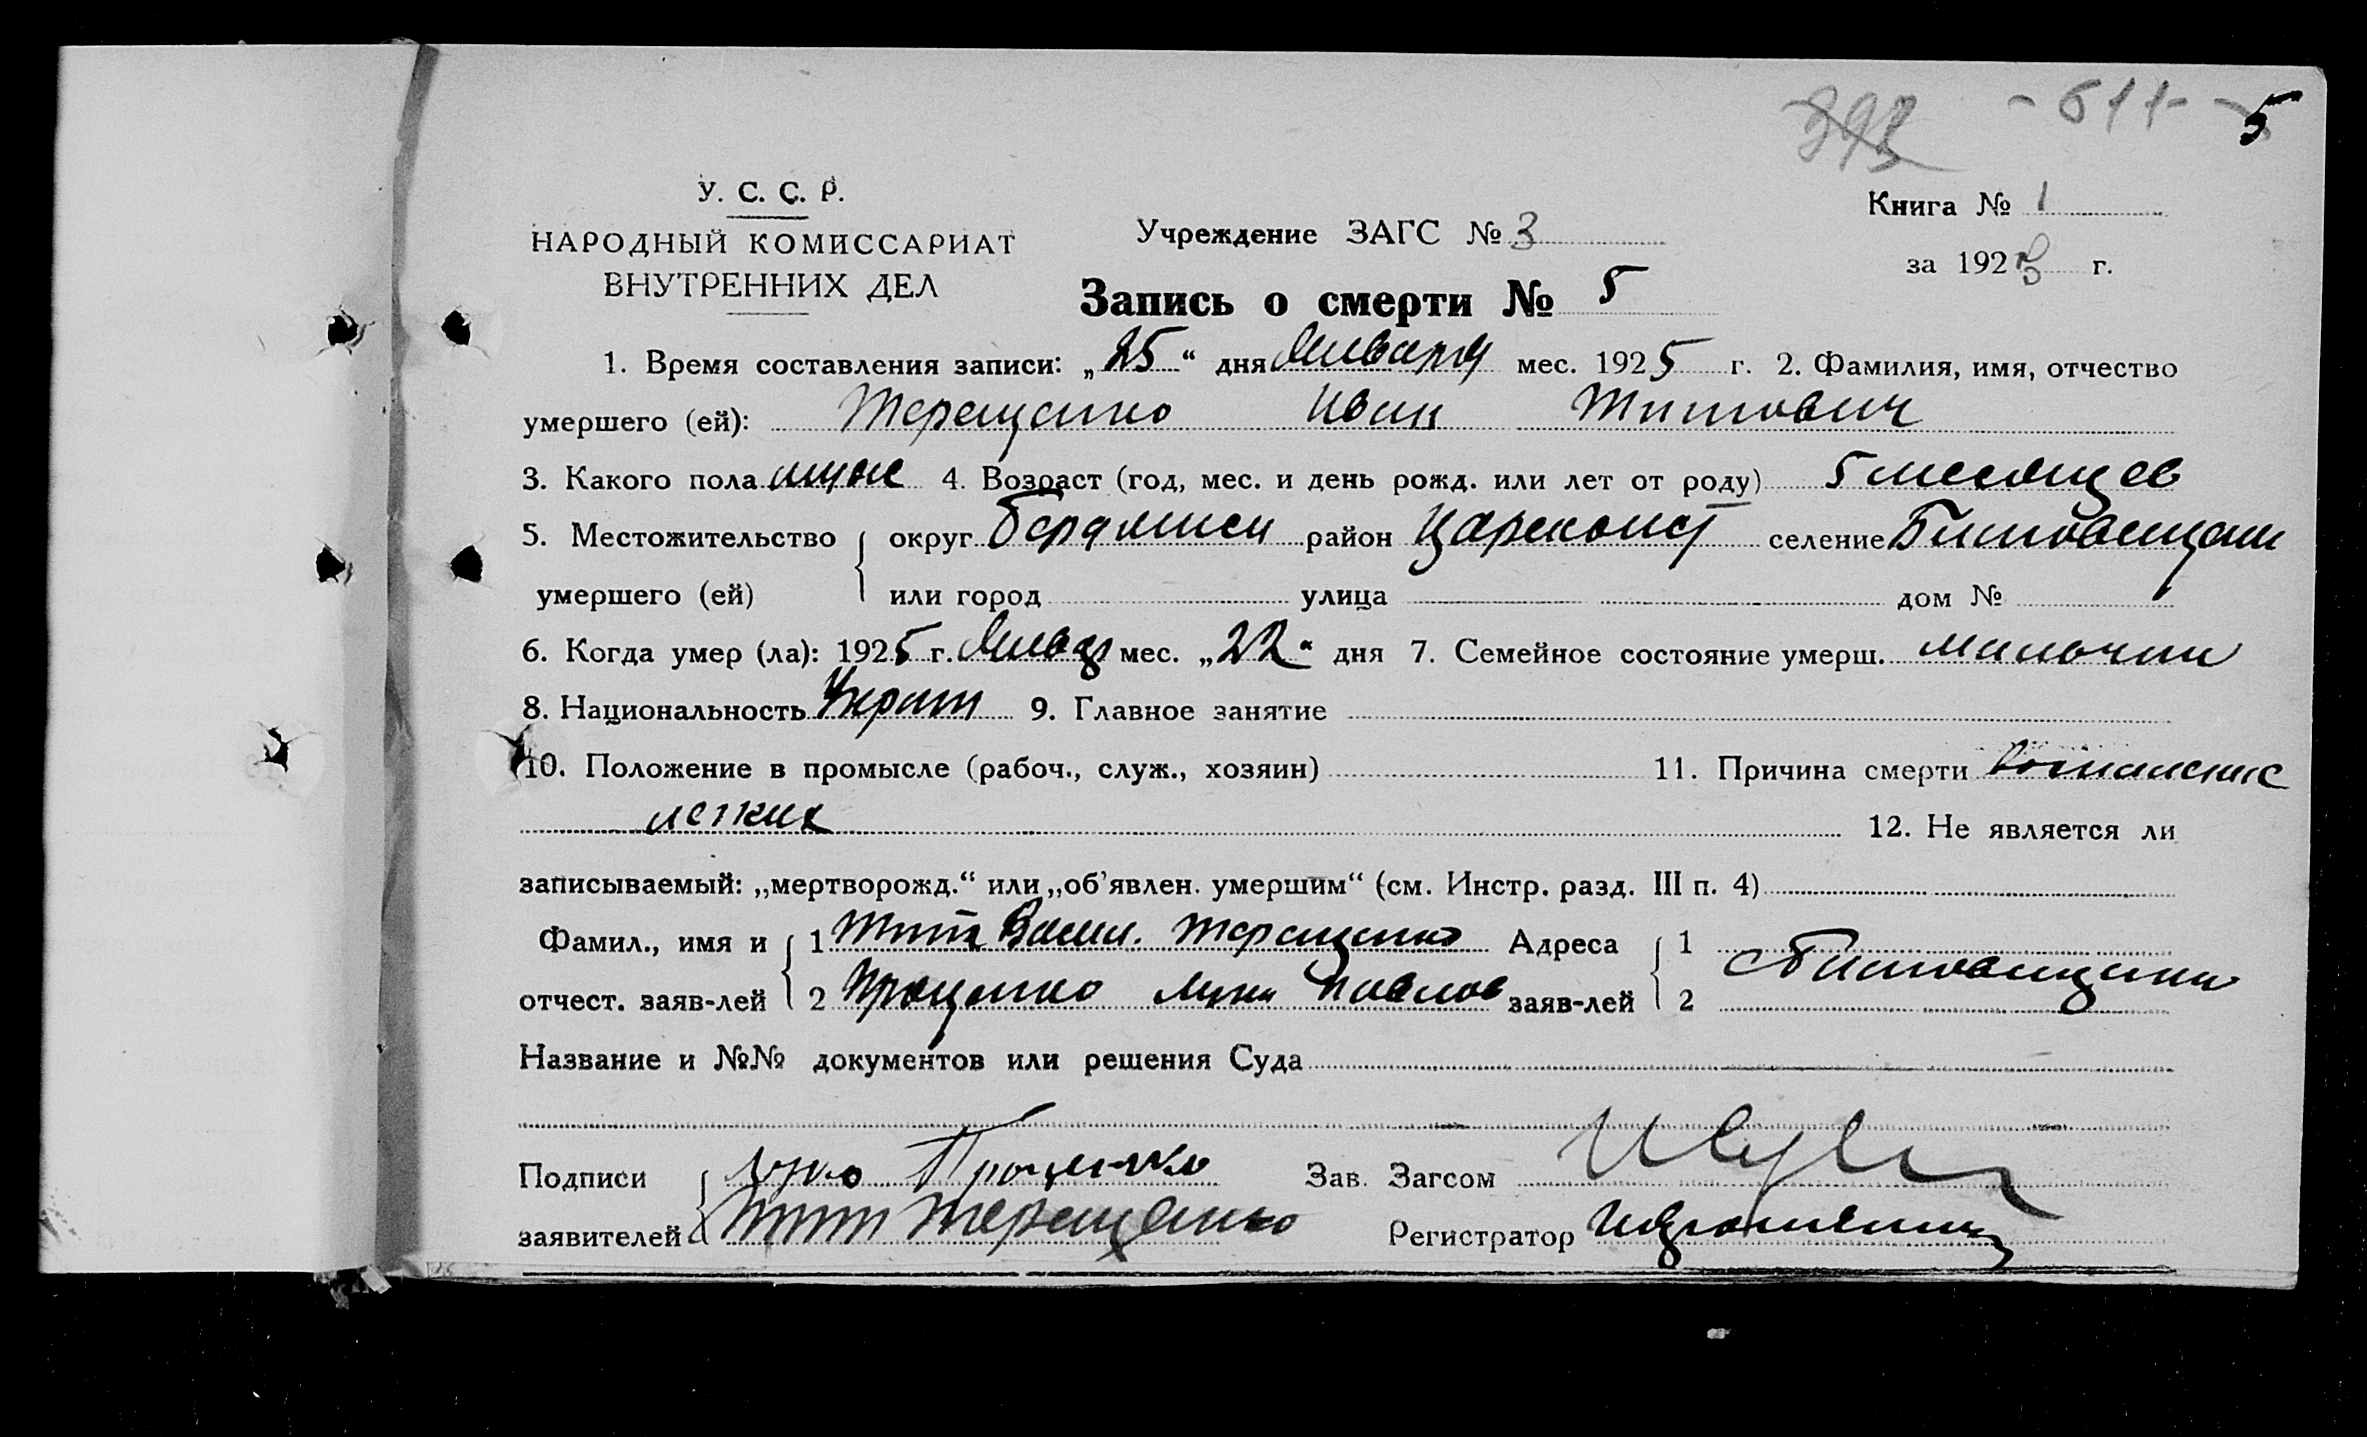 393 - 511 - 5
У. С. С. Р.
НАРОДНЫЙ КОМИССАРИАТ
ВНУТРЕННИХ ДЕЛ
Учреждение ЗАГС № 3
Книга № 1
за 192 г.
Запись о смерти № 5
1. Время составления записи: „25“ дня Января мес. 1925 г. 2. Фамилия, имя, отчество
умершего (ей): Терещенко Иван Титович
3. Какого пола муж 4. Возраст (год, мес. и день рожд. или лет от роду) 5 месяцев
5. Местожительство округ Бердянск район Цареконст селение
умершего (ей) или город улица дом №
6. Когда умер (ла): 1925 г. Январ мес. „22“ дня 7. Семейное состояние умерш. мальчик
8. Национальность Украин 9. Главное занятие
10. Положение в промысле (рабоч., служ., хозяин) 11. Причина смерти Воспаление
легких 12. Не является ли
записываемый: „мертворожд.“ или „об’явлен. умершим“ (см. Инстр. разд. III п. 4)
Фамил., имя и 1 Тит Васил. Терещенко Адреса 1
отчест. заяв-лей 2 Проценко Лука Павлов заяв-лей 2
Название и №№ документов или решения Суда
Подписи Лука Проценко Зав. Загсом
заявителей Тит Терещенко Регистратор